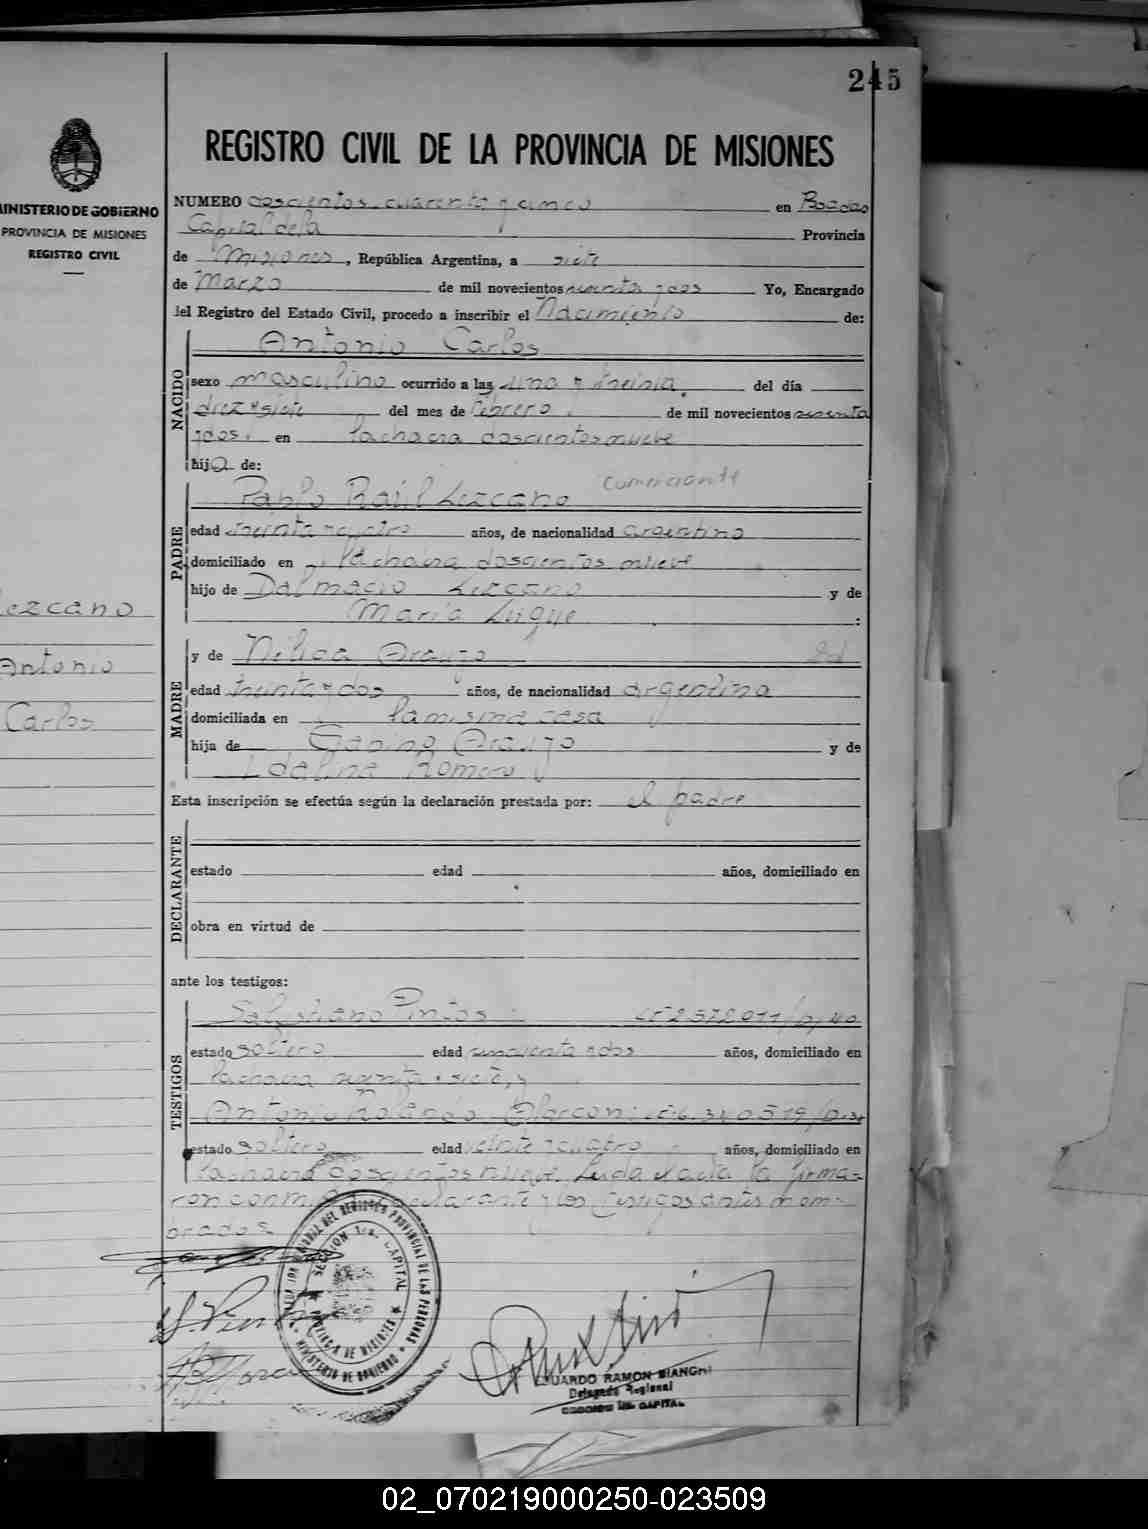 245
MINISTERIO DE GOBIERNO
PROVINCIA DE MISIONES
REGISTRO CIVIL
Lezcano
Antonio
Carlos
REGISTRO CIVIL DE LA PROVINCIA DE MISIONES
NUMERO doscientos cuarenta y cinco en Posadas
Capital de la Provincia
de Misiones, República Argentina, a siete
de Marzo de mil novecientos y dos Yo, Encargado
del Registro del Estado Civil, procedo a inscribir el Nacimiento de:
NACIDO
Antonio Carlos
sexo masculino ocurrido a las una y treinta del día
diez y siete del mes de febrero de mil novecientos
y dos. en la chacra doscientos nueve
hijo de:
PADRE
Pablo Raúl Lezcano comerciante
edad treinta y cuatro años, de nacionalidad argentino
domiciliado en la chacra doscientos nueve
hijo de Dalmacio Lezcano y de
María Luque :
MADRE
y de Nélida Araujo
edad treinta y dos años, de nacionalidad argentina
domiciliada en la misma casa
hija de Gabino Araujo y de
Idalina Romero
Esta inscripción se efectúa según la declaración prestada por: el padre
DECLARANTE
estado edad años, domiciliado en
obra en virtud de
ante los testigos:
TESTIGOS
Salustiano Pintos
estado soltero edad cincuenta y dos años, domiciliado en
la chacra y siete, y
Antonio Rolando Alarcon
estado soltero edad veinte y cuatro años, domiciliado en
la chacra doscientos nueve. Leida el acta la firma-
ron conmigo declarante y los testigos antes nom-
brados
SECCION 1ra. CAPITAL
PROVINCIA DE MISIONES
MINISTERIO DE GOBIERNO
EDUARDO RAMON BIANCHI
Delegado Regional
02_070219000250-023509